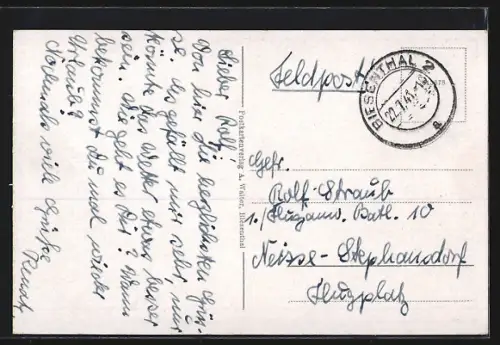 Lieber Rolf!
Von hier die herzlichsten Grüs-
se. Es gefällt mir sehr, nur
könnte das Wetter etwas besser
sein. Wie geht es Dir? Wann
bekommst Du mal wieder
Urlaub?
Nochmals viele Grüße
Postkartenverlag A. Walter, Biesenthal
Feldpost
BIESENTHAL 2
a
Gefr.
Rolf Straub
1./Fluganw. Batl. 10
Neisse-Stephansdorf
Flugplatz